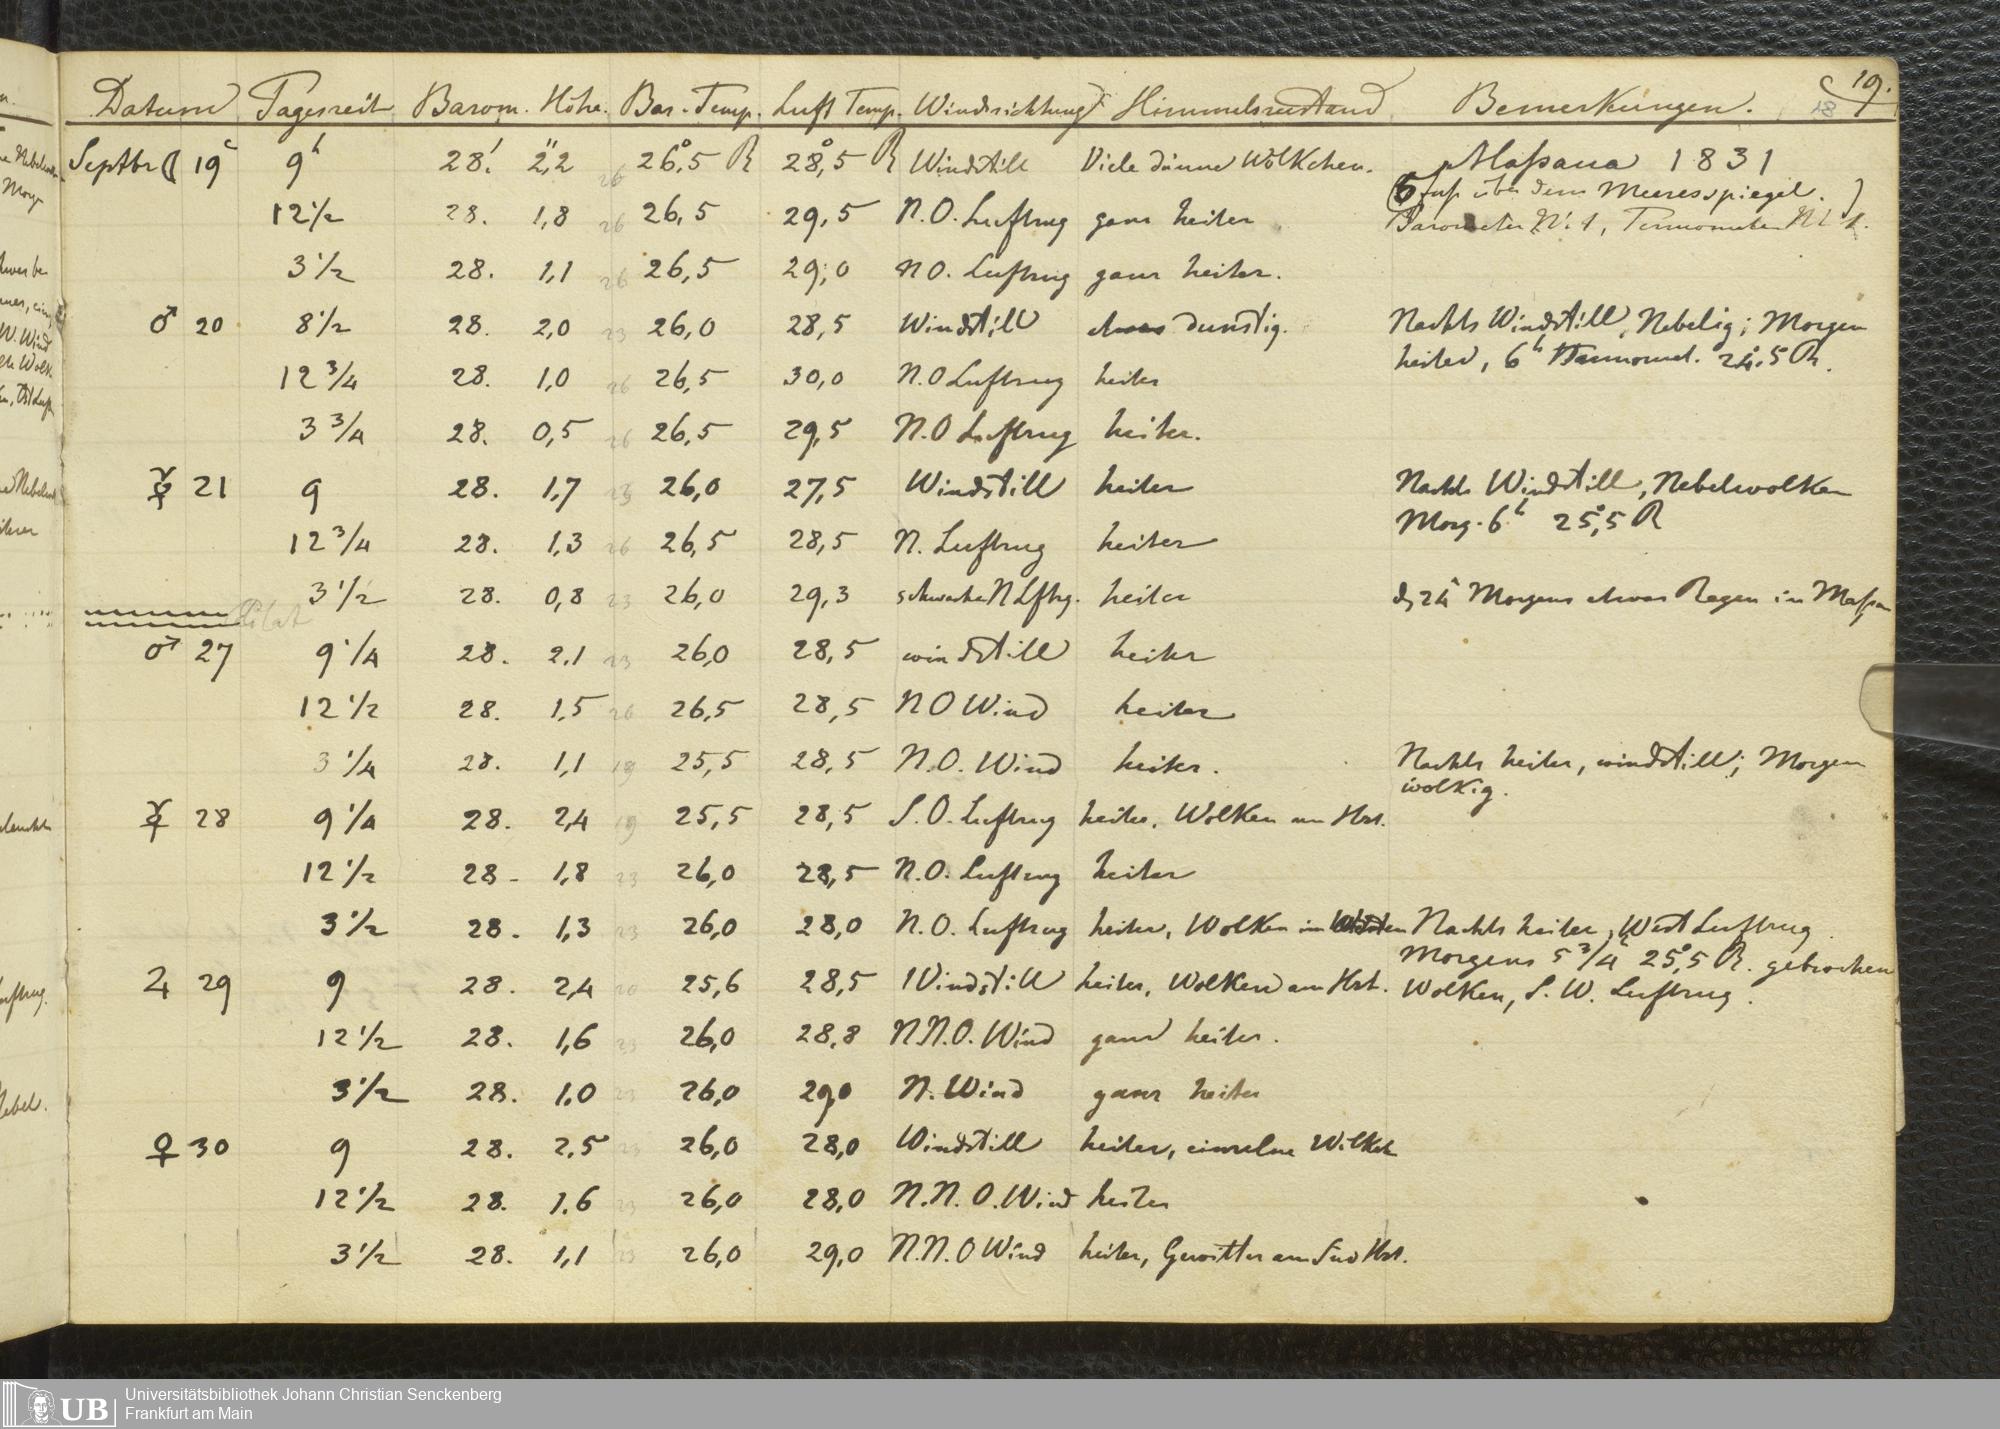 19.
18
Datum Tagesreit Barom. Höhe. Bar-Temp. Luft Temp. Windrichtung Himmelszustand Bemerkungen.
Septbr ☾ 19 9h 28.' 2,''2 26 26,°5 R 28,°5 R Windstill Viele dünne Wölkchen. Maßaua 1831
(6 Fuß über dem Meeresspiegel.)
12 1/2 28. 1,8 26 26,5 29,5 N.O. Luftzug ganz heiter Barometer N. 1, Termometer N 1.
3 1/2 28. 1,1 26 26,5 29,0 NO. Luftzug ganz heiter.
♂ 20 8 1/2 28. 2,0 23 26,0 28,5 Windstill etwas dunstig. Nachts Windstill, Nebelig; Morgen
heiter, 6h Termomet. 24,°5 R.
12 3/4 28. 1,0 26 26,5 30,0 N.O Luftzug heiter
3 3/4 28. 0,5 26 26,5 29,5 N.O Luftzug heiter.
☿ 21 9 28. 1,7 23 26,0 27,5 Windstill heiter Nachts Windstill, Nebelwolken
Morg. 6h 25,°5 R
12 3/4 28. 1,3 26 26,5 28,5 N. Luftzug heiter
3 1/2 28. 0,8 23 26,0 29,3 schwacher N Lftzg. heiter d 24 Morgens etwas Regen in Maßau
♂ 27 9 1/4 28. 2,1 23 26,0 28,5 windstill heiter
12 1/2 28. 1,5 26 26,5 28,5 N O Wind heiter
3 1/4 28. 1,1 19 25,5 28,5 N.O. Wind heiter. Nachts heiter, windstill; Morgen
wolkig.
☿ 28 9 1/4 28. 2,4 19 25,5 28,5 S.O. Luftzug heiter, Wolken am Hrt.
12 1/2 28- 1,8 23 26,0 28,5 N.O. Luftzug heiter
3 1/2 28. 1,3 23 26,0 28,0 N.O. Luftzug heiter, Wolken im Westen Nachts heiter, West Luftzug.
Morgens 5 3/4 25,°5 R. gebrochen
♃ 29 9 28. 2,4 20 25,6 28,5 Windstill heiter, Wolken am Hrt. Wolken, S. W. Luftzug.
12 1/2 28. 1,6 23 26,0 28,8 N.N.O. Wind ganz heiter.
3 1/2 28. 1,0 23 26,0 29,0 N. Wind ganz heiter
♀ 30 9 28. 2,5 23 26,0 28,0 Windstill heiter, einzelne Wölkch
12 1/2 28. 1.6 23 26,0 28,0 N.N.O. Wind heiter
3 1/2 28. 1,1 23 26,0 29,0 N.N.O Wind heiter, Gewitter am Süd Hrt.
UB Universitätsbibliothek Johann Christian Senckenberg
Frankfurt am Main